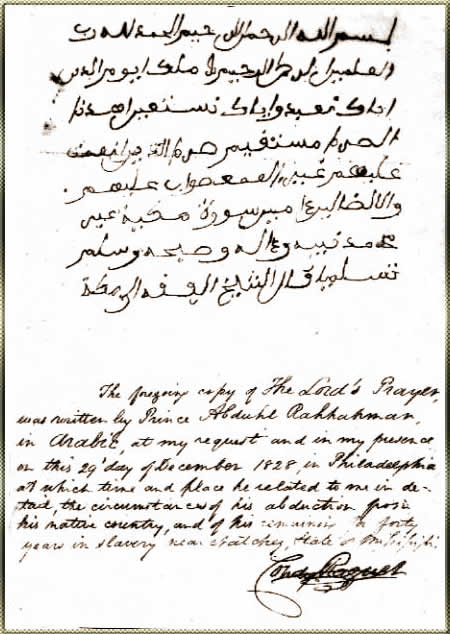 بسم الله الرحمن الرحيم الحمد لله رب
العلمين الرحمن الرحيم ملك ايوم الدين
اياك نعبد واياك نستعين اهدنا
الصرط مستقيم صرط الذين انعمت
عليهم غير المغضوب عليهم
ولا الضالين امين سورة
محمد نبيه واله وصحبه وسلم
تسليما قال الشيخ
The foregoing copy of The Lord's Prayer,
was written by Prince Abduhl Rahhahman,
in Arabic, at my request and in my presence
on this 29' day of December 1828, in Philadelphia
at which time and place he related to me in de-
tail, the circumstances of his abduction from
his native country, and of his remaining in forty
years in slavery near Natchez, State of Mississippi.
Condy Raguet